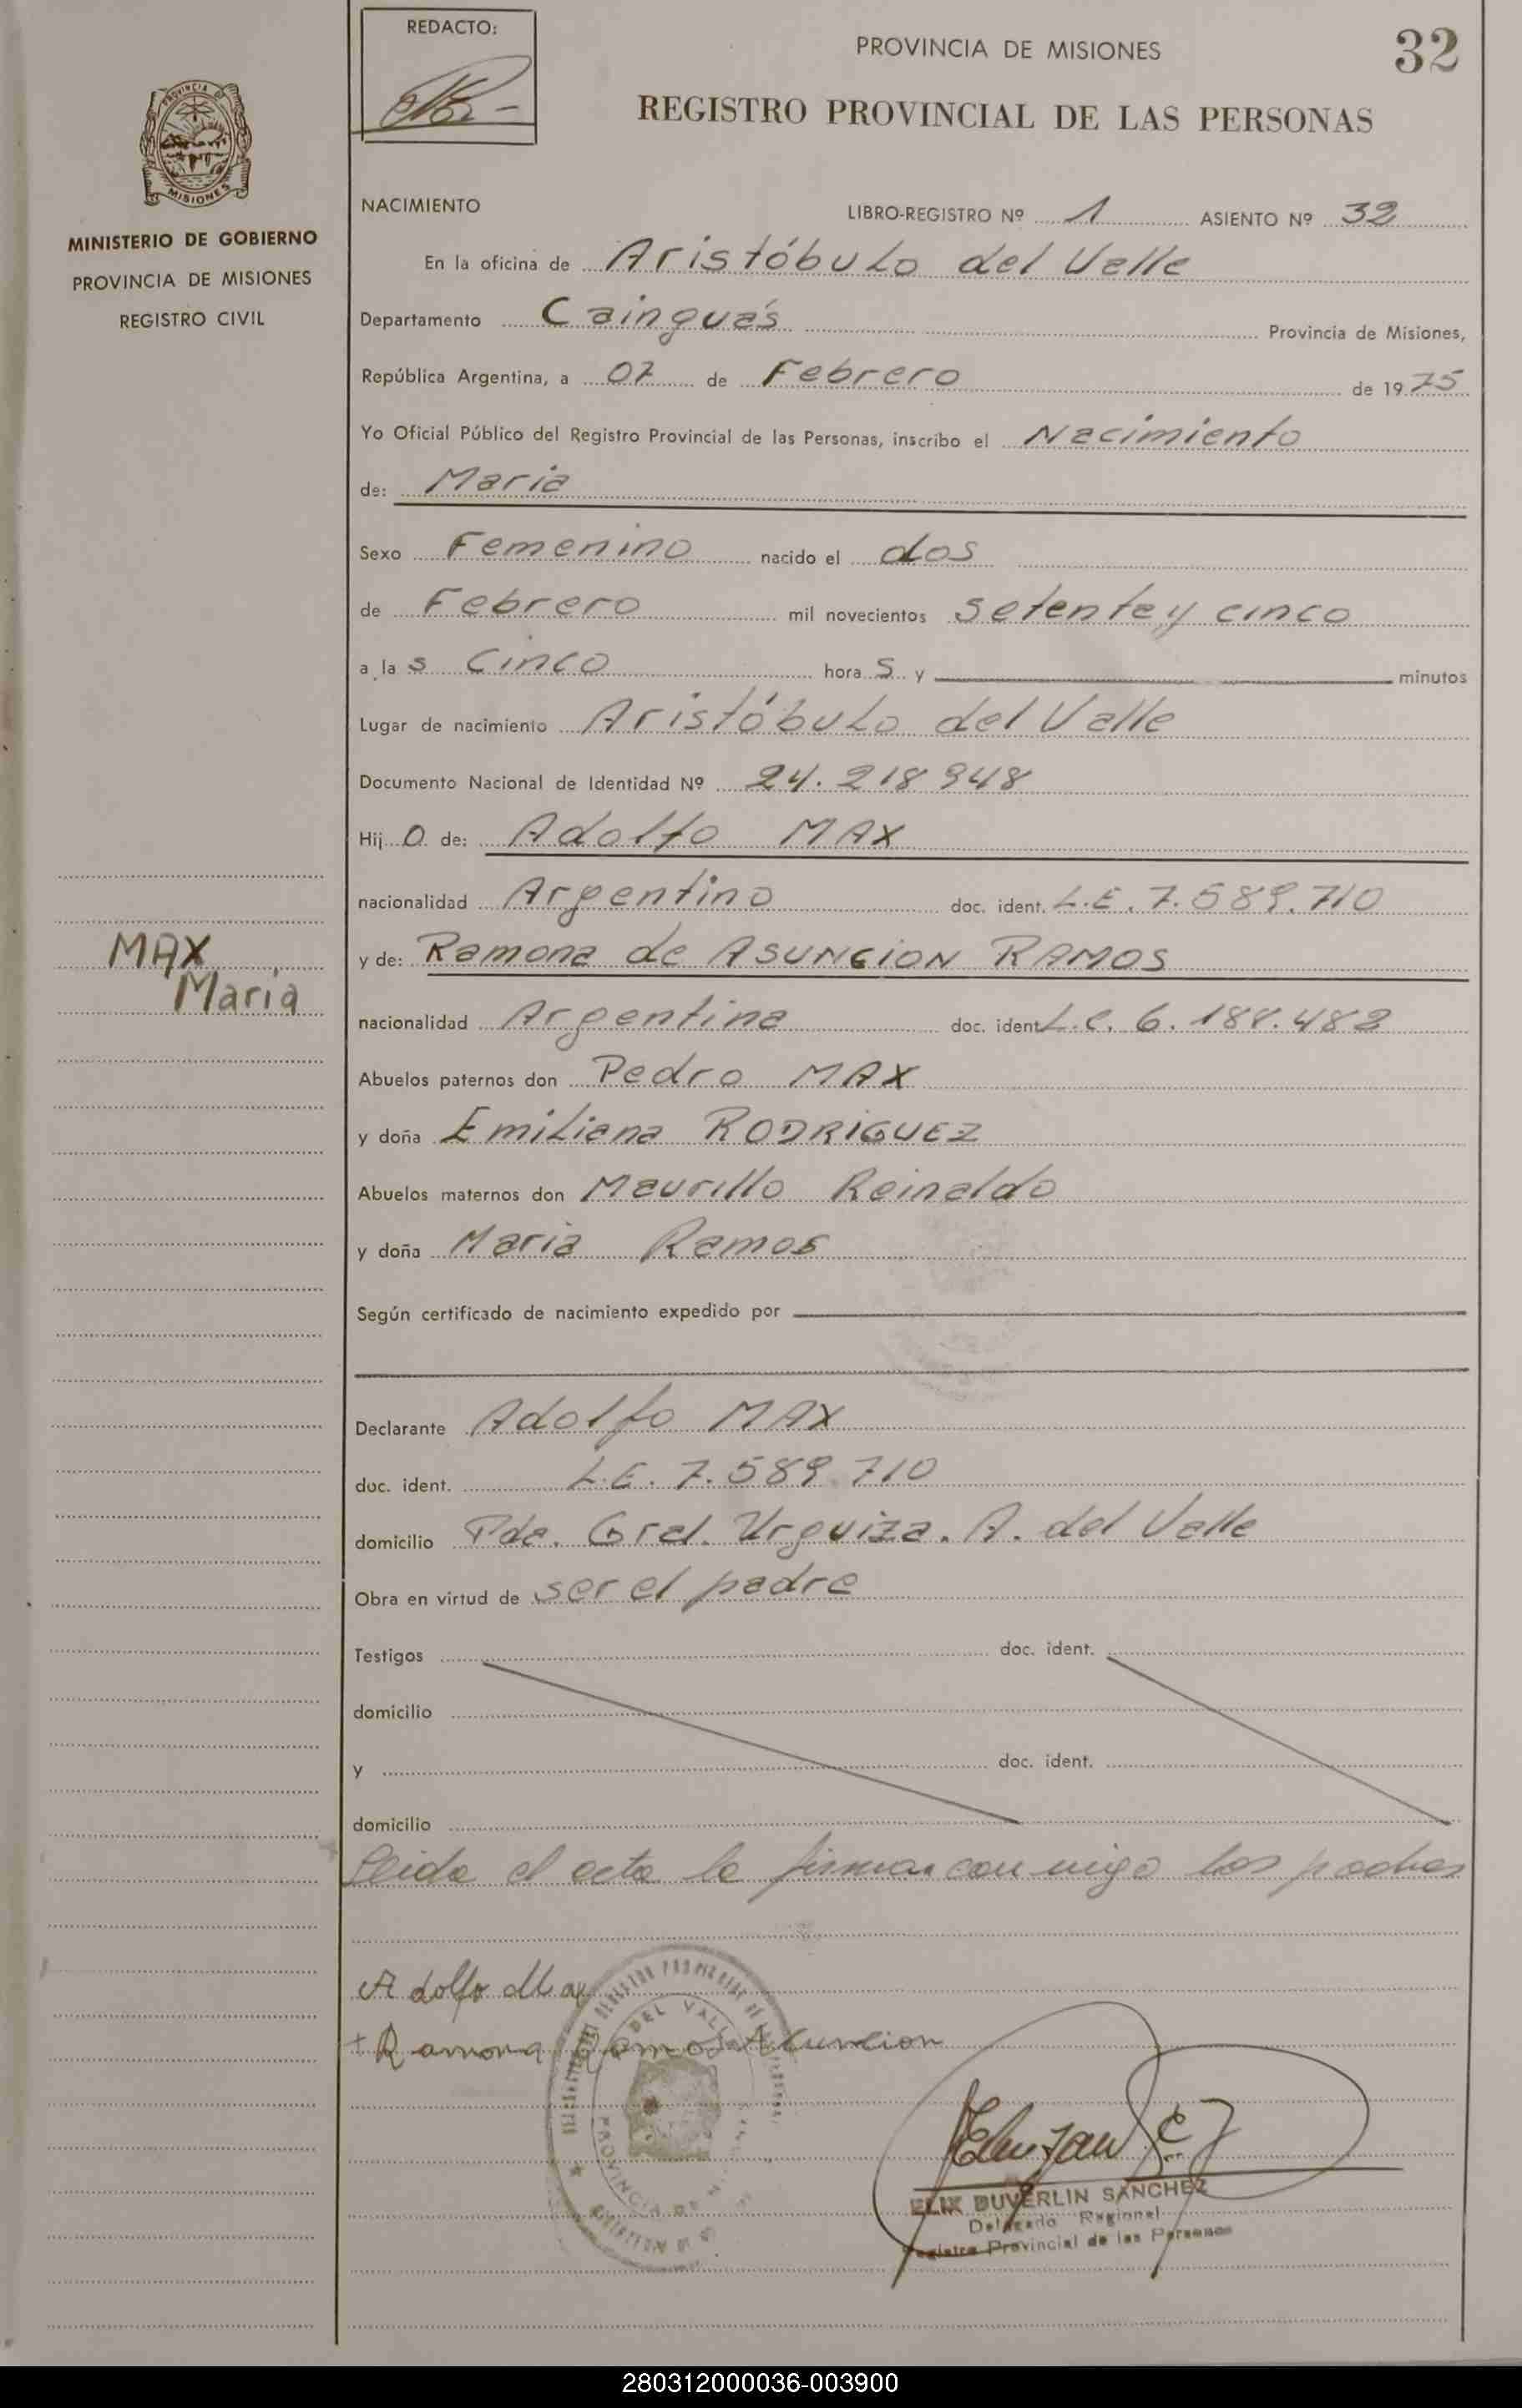 REDACTO:
PROVINCIA DE MISIONES
32
REGISTRO PROVINCIAL DE LAS PERSONAS
PROVINCIA DE
MISIONES
MINISTERIO DE GOBIERNO
PROVINCIA DE MISIONES
REGISTRO CIVIL
NACIMIENTO
LIBRO-REGISTRO Nº 1 ASIENTO Nº 32
En la oficina de Aristóbulo del Valle
Departamento Cainguás Provincia de Misiones,
República Argentina, a 07 de Febrero de 1975
Yo Oficial Público del Registro Provincial de las Personas, inscribo el Nacimiento
de: Maria
Sexo Femenino nacido el dos
de Febrero mil novecientos setenta y cinco
a las Cinco horas y minutos
Lugar de nacimiento Aristóbulo del Valle
Documento Nacional de Identidad Nº 24.218948
Hijo de: Adolfo MAX
nacionalidad Argentino doc. ident. L.E. 7.589.710
MAX
Maria
y de: Ramona de ASUNCION RAMOS
nacionalidad Argentina doc. ident L.C. 6.188.482
Abuelos paternos don Pedro MAX
y doña Emiliana RODRIGUEZ
Abuelos maternos don Maurillo Reinaldo
y doña Maria Ramos
Según certificado de nacimiento expedido por
Declarante Adolfo MAX
doc. ident. L.E. 7.589.710
domicilio Pde. Gral. Urquiza. A. del Valle
Obra en virtud de ser el padre
Testigos doc. ident.
domicilio
y doc. ident.
domicilio
Leida el acta la firman con migo los padres
Adolfo Max
+ Ramona Ramos Asuncion
DEL VALLE
PROVINCIA DE
ELIX DUVERLIN SANCHEZ
Delegado Regional
Registro Provincial de las Personas
280312000036-003900